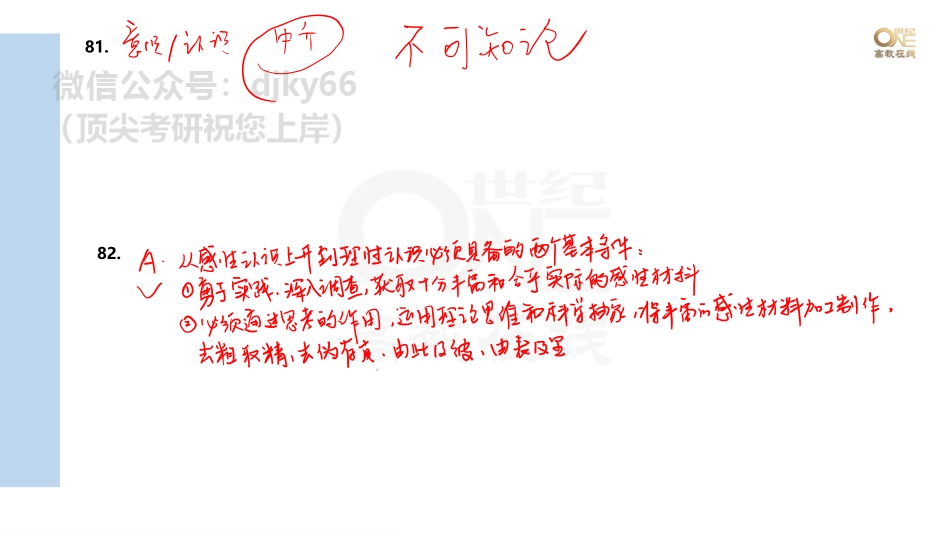 81. 意识/认识 中介 不可知论
世纪
ONE
高教在线
微信公众号：djky66
（顶尖考研祝您上岸）
世纪
ONE
高教在线
82. A. 从感性认识上升到理性认识必须具备的两个基本条件：
①勇于实践、深入调查，获取十分丰富和合乎实际的感性材料
②必须通过思考的作用，运用理论思维和科学抽象，将丰富的感性材料加工制作，
去粗取精、去伪存真、由此及彼、由表及里